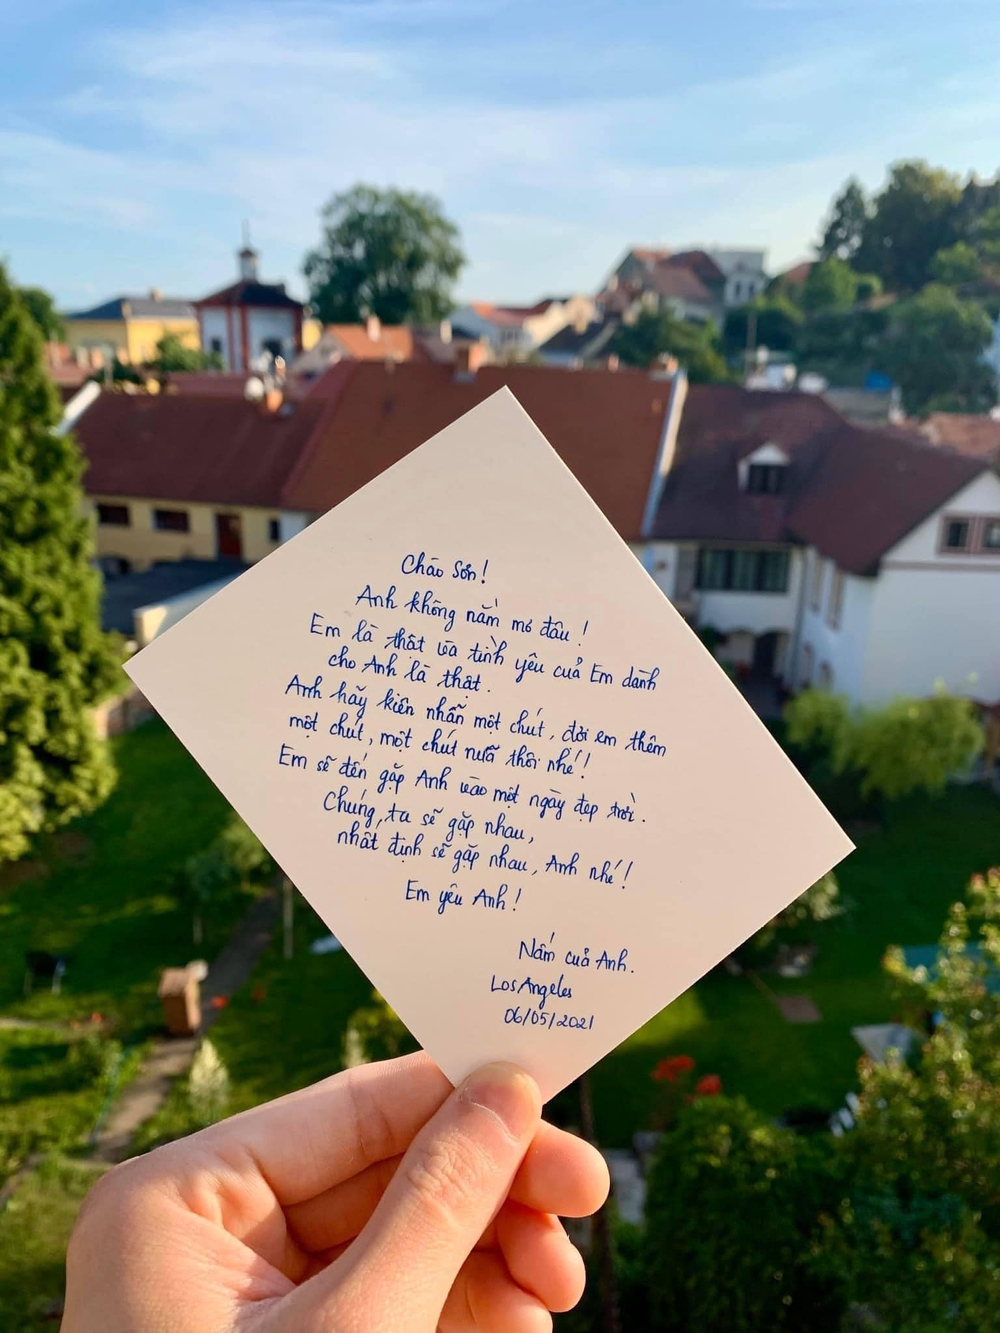 Chào Sơn!
Anh không nằm mơ đâu!
Em là thật và tình yêu của Em dành
cho Anh là thật.
Anh hãy kiên nhẫn một chút, đợi em thêm
một chút, một chút nữa thôi nhé!
Em sẽ đến gặp Anh vào một ngày đẹp trời.
Chúng ta sẽ gặp nhau,
nhất định sẽ gặp nhau, Anh nhé!
Em yêu Anh!
Nấm của Anh.
Los Angeles
06/05/2021